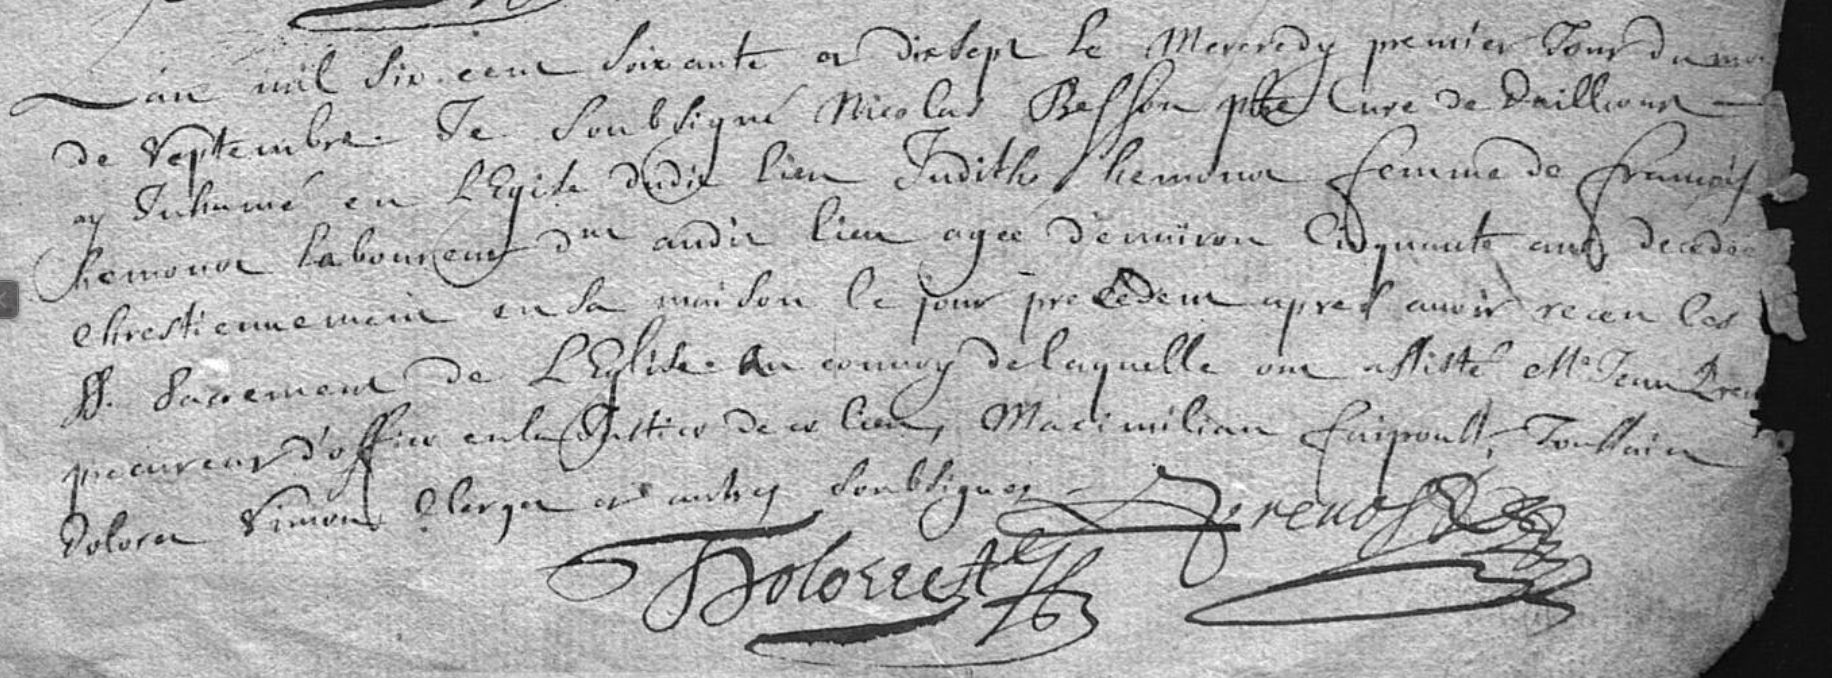 Lan mil six cent soixante et dix sept le Mercredy premier Jour du moi
de Septembre Je soubsigné Nicolas Besson pbre Curé de
ay Inhumé en LEglise dudit lieu Judith hemonot femme de françois
hemonot laboureur dmt audit lieu agée d'environ Cinquante ans decedée
chrestiennement en sa maison le jour precedent apres avoir receu les
SS. Sacrement de LEglise. Au convoy de laquelle ont assisté Me Jean
procureur d'office en la Justice de ce lieu, Maximilian Toussain
Doloret Simon Clerget et autres soubsignez
Doloret